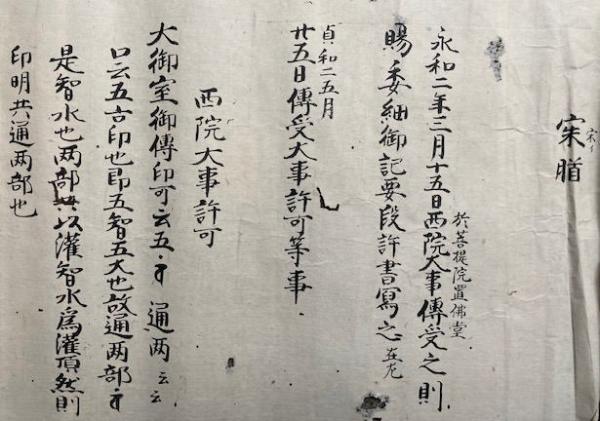 宋
於菩提院置佛堂
永和二年三月十五日西院大事傳受之則
賜委細御記要段許書寫之 在尤
貞和二五月
廿五日傳受大事許可等事
西院大事許可
大御室御傳印可云五 通两云云
口云五古印也即五智五大也故通两部
是智水也两部共以灌智水爲灌頂然則
印明共通两部也